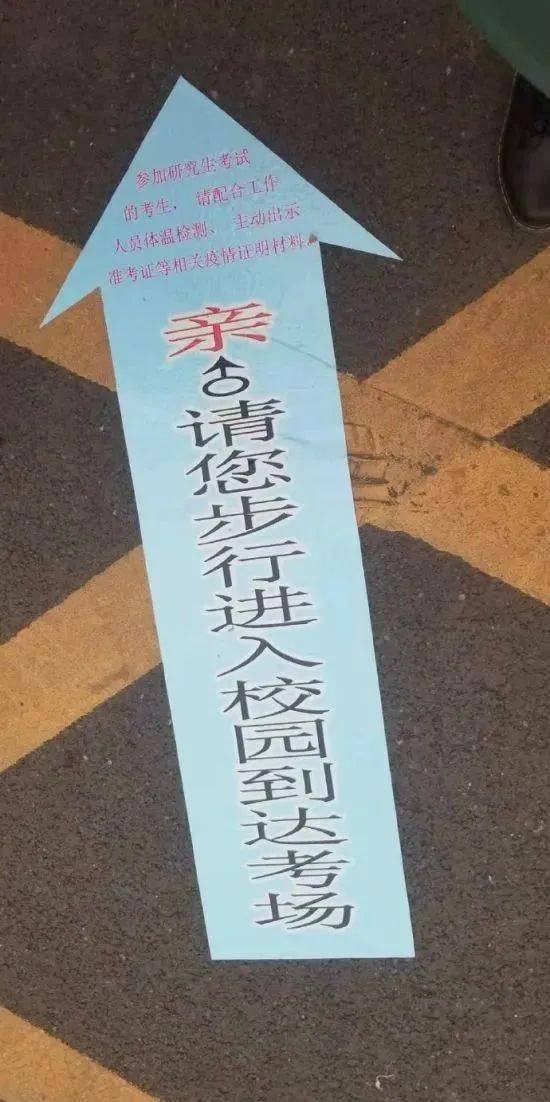 参加研究生考试
的考生，请配合工作
人员体温检测、主动出示
准考证等相关疫情证明材料。
亲
请您步行进入校园到达考场